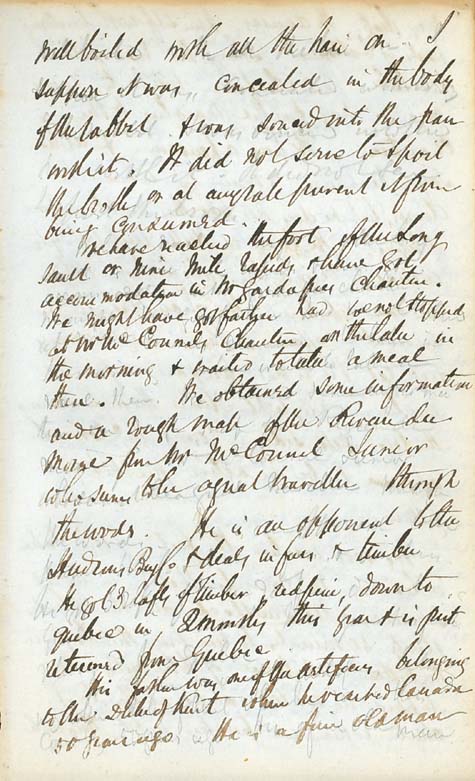 well boiled with all the hair on. I
suppose it was concealed in the body
of the rabbit & was souced into the pan
with it. It did not serve to spoil
the broth or at any rate prevent it from
being consumed.
We have reached the foot of the Long
Sault or Nine Mile Rapids & have got
accommodation in Mr Chantier.
We might have got farther had we not stopped
at Mr McConnels Chantier on the lake in
the morning & waited to take a meal
there. We obtained some information
and a rough map of the Riviere du
Moine from Mr McConnel Junior
who seems to be a great traveller through
the woods. He is an opponent to the
Hudsons Bay Co & deals in furs & timber
He got 3 rafts of timber, red pine, down to
Quebec in 2 months this year & is just
returned from Quebec
His father was one of the artificers belonging
to the Duke of Kent when he visited Canada
50 years ago He is a fine old man